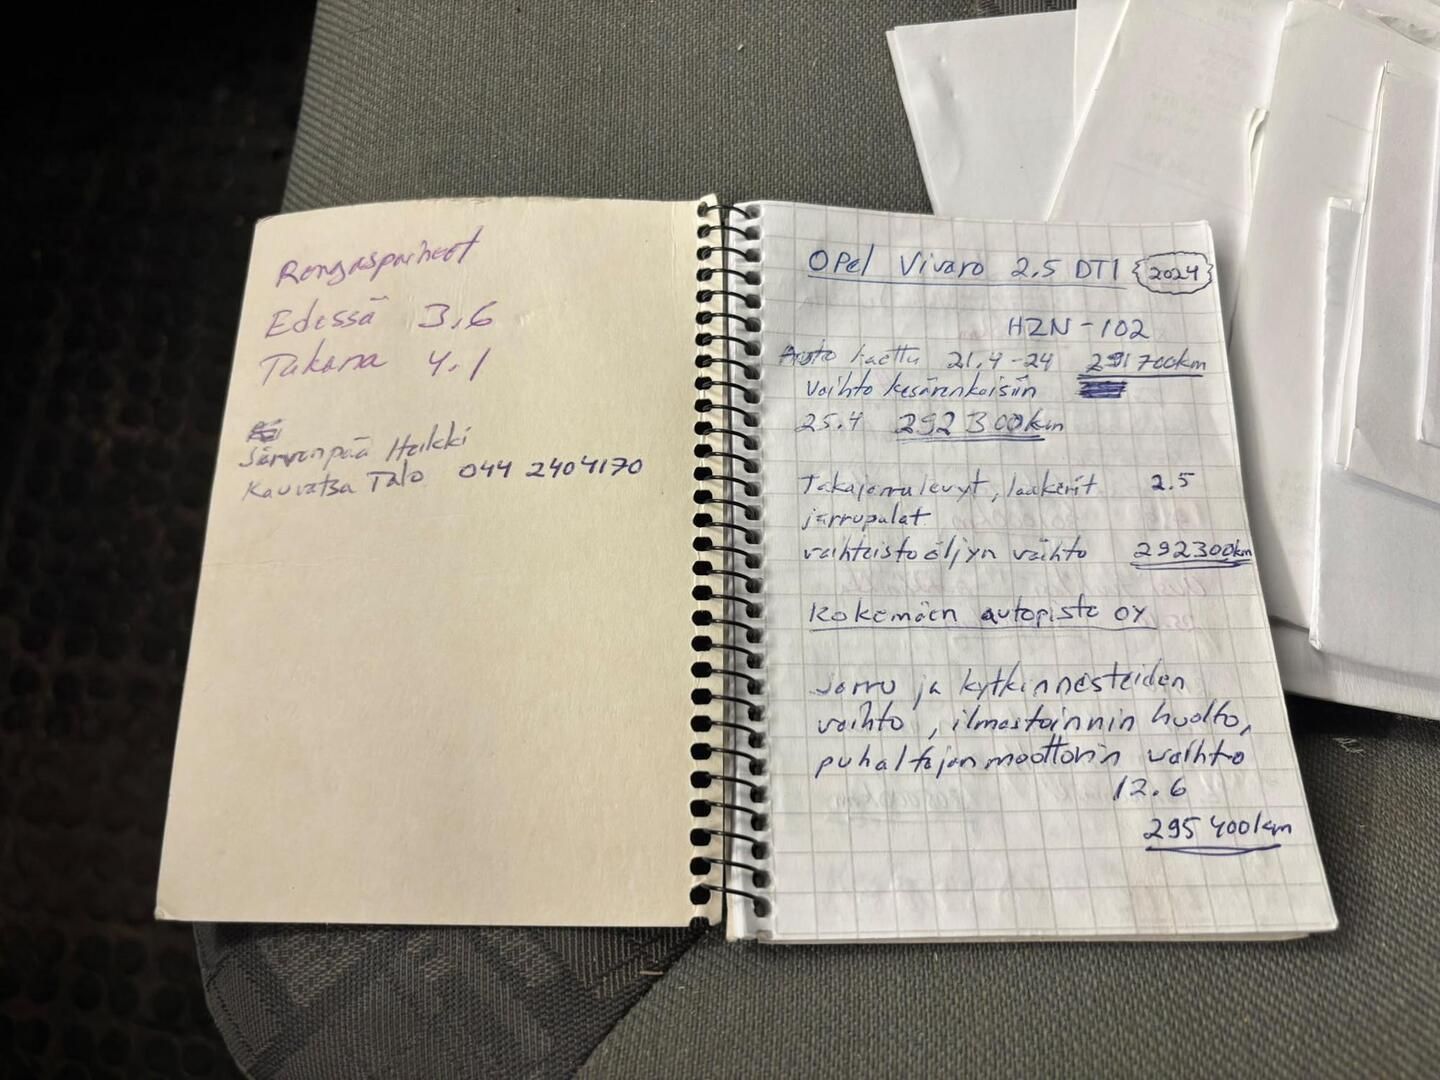 Rengaspaineet
Edessä 3,6
Takana 4.1
Järvenpää Heikki
Kauvatsa Talo 044 2404170
Opel Vivaro 2.5 DTI 2024
HZN-102
Auto haettu 21.4-24 291700km
Vaihto kesärenkaisiin
25.4 292300km
Takajarrulevyt, laakerit 2.5
jarrupalat
vaihteistoöljyn vaihto 292300km
Kokemäen autopiste OY
Jarru ja kytkinnesteiden
vaihto, ilmastoinnin huolto,
puhaltajan moottorin vaihto
12.6
295400km